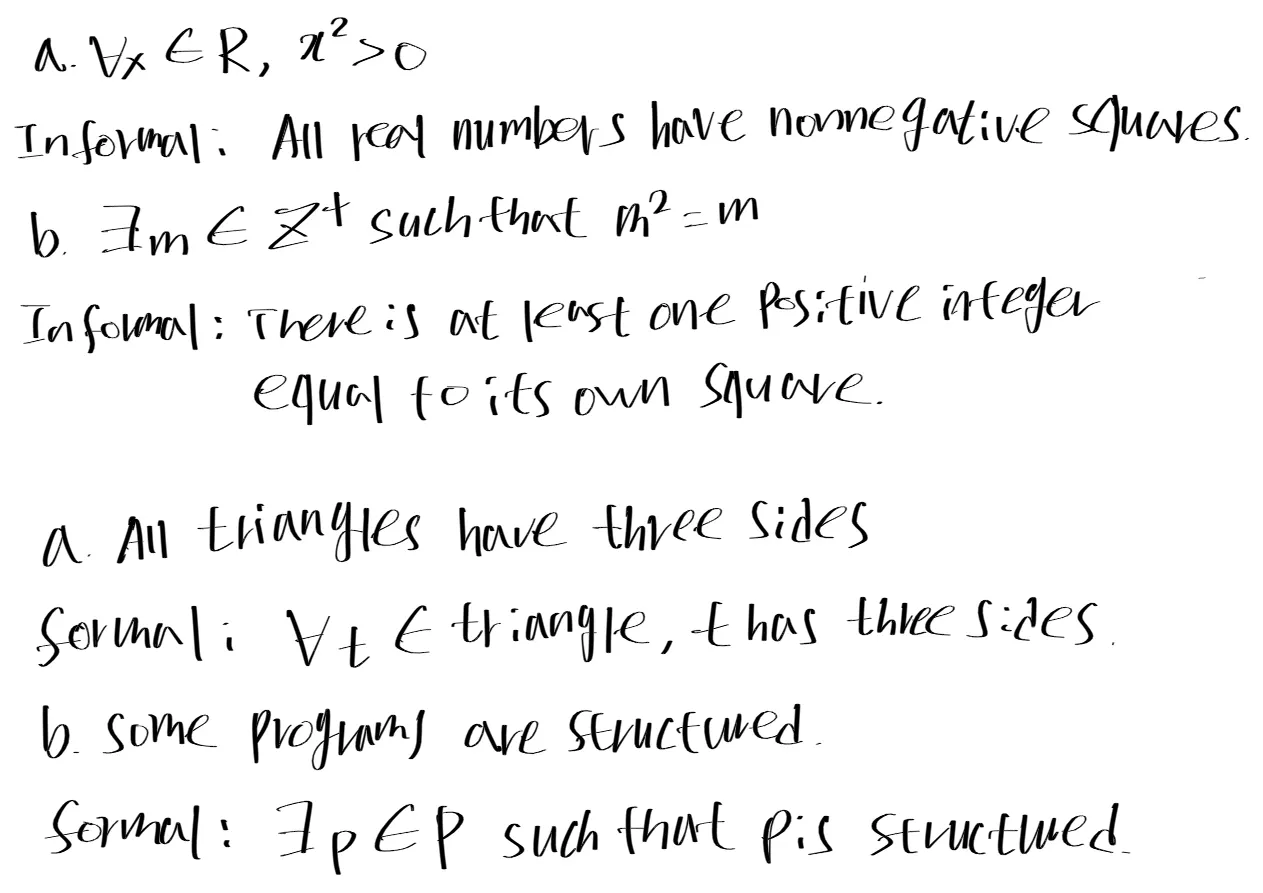 a. ∀x ∈ R, x² > 0
Informal: All real numbers have nonnegative squares.
b. ∃m ∈ Z⁺ such that m² = m
Informal: There is at least one positive integer
equal to its own square.
a. All triangles have three sides
formal: ∀t ∈ triangle, t has three sides.
b. some programs are structured.
formal: ∃p ∈ P such that p is structured.